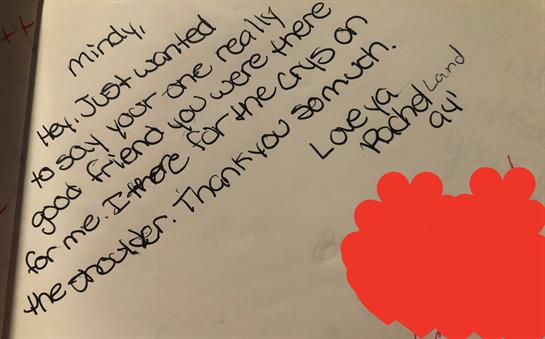 Mindy,
Hey. Just wanted
to say your one really
good friend you were there
for me. I there for the crys on
the shoulder. Thank you so much.
Love ya
Rachel Land